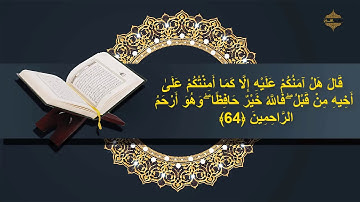 قَالَ هَلْ آمَنُكُمْ عَلَيْهِ إِلَّا كَمَا أَمِنْتُكُمْ عَلَىٰ
أَخِيهِ مِنْ قَبْلُ ۖ فَاللَّهُ خَيْرٌ حَافِظًا ۖ وَهُوَ أَرْحَمُ
الرَّاحِمِينَ ﴿64﴾